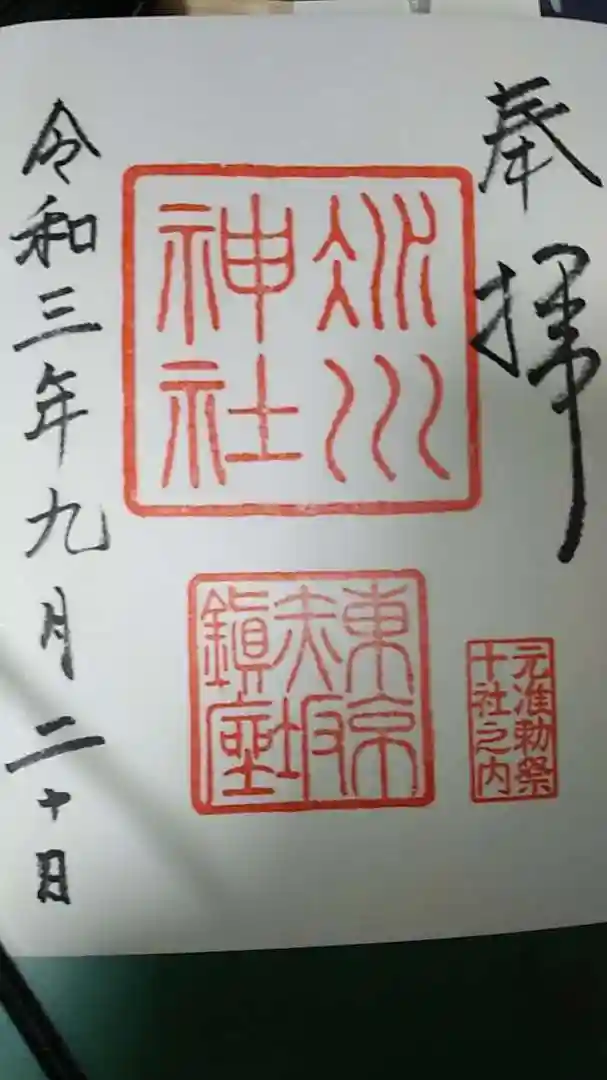 奉拝
氷川
神社
東京
赤坂
鎮座
元准勅祭
十社之内
令和三年九月二十日